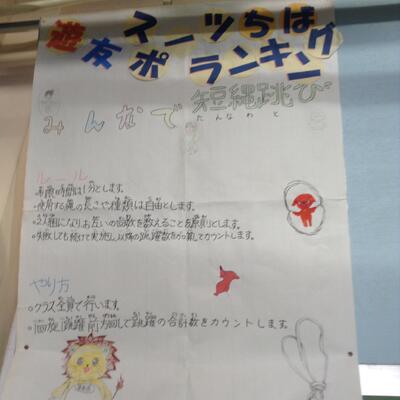 遊友スポーツちばランキング
みんなで短縄跳び
たんなわと
ルール
・制限時間は1分とします。
・使用する縄の長さや種類は自由とします。
・2人組になりお互いの回数を数えることを原則とします。
・失敗しても続けて実施し以降の跳躍数を加算してカウントします。
やり方
○クラス全員で行います。
○1回旋1跳躍前方回しで跳躍の合計数をカウントします。